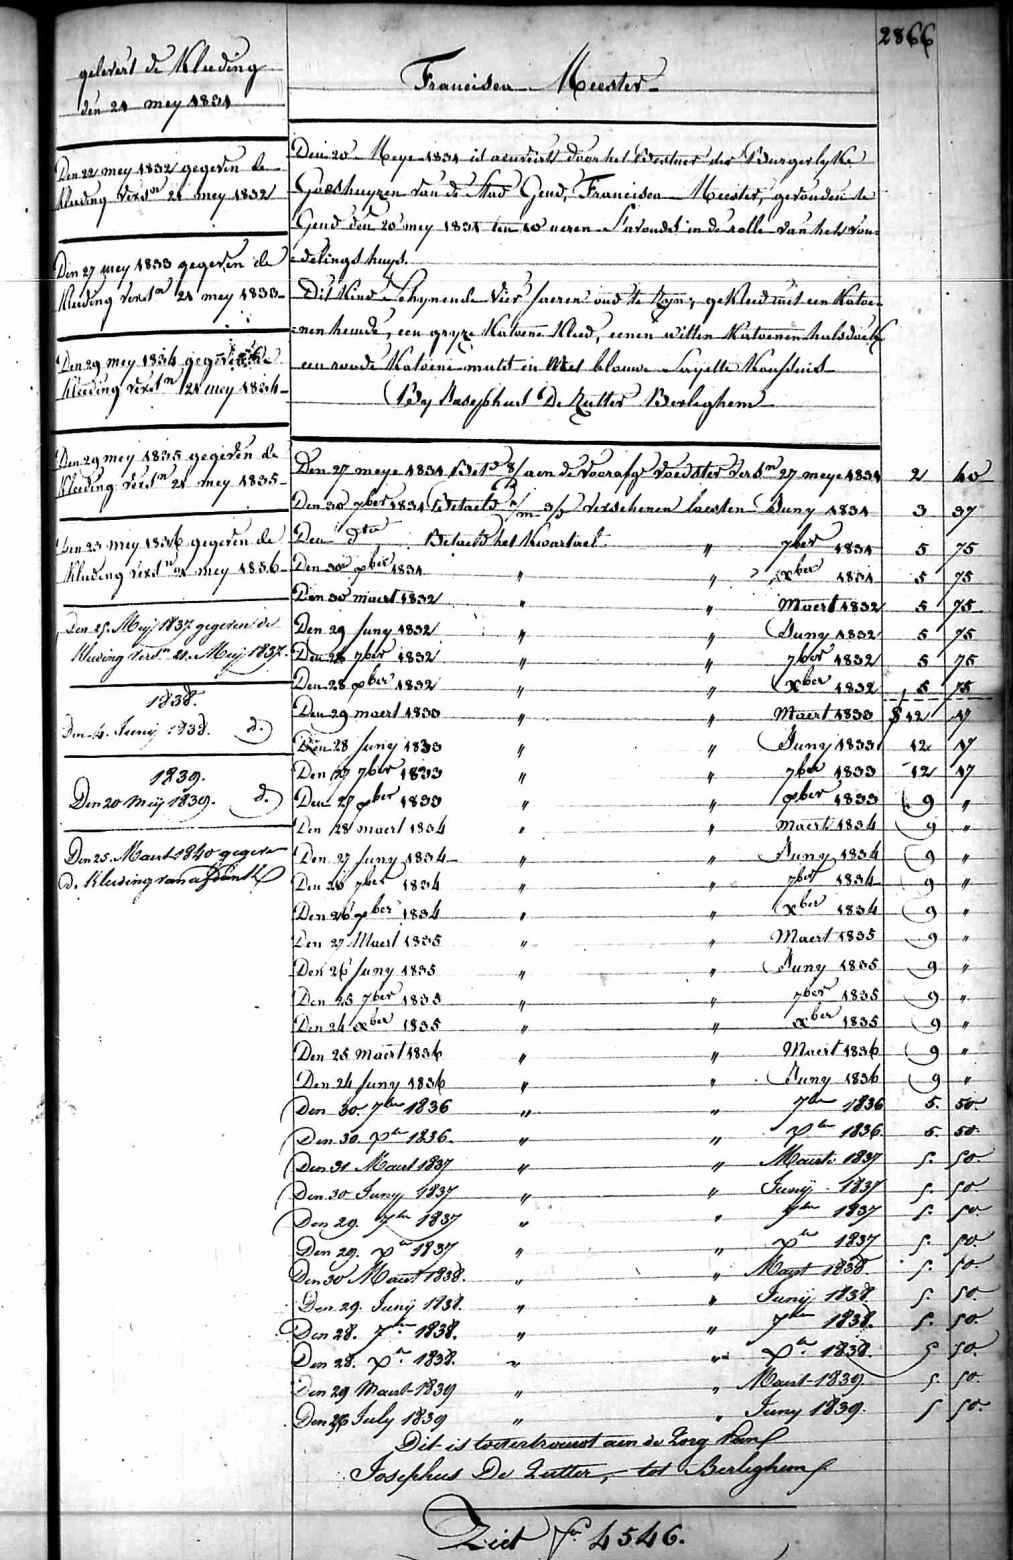 2866
gelevert de Kleeding
den 21 mey 1831
Den 22 mey 1832 gegeven de
kleeding versn 21 mey 1832
Den 27 mey 1833 gegeven de
kleeding versn 21 mey 1833
Den 29 mey 1834 gegeven de
kleeding versn 21 mey 1834
Den 29 mey 1835 gegeven de
kleeding versn 21 mey 1835
Den 23 mey 1836 gegeven de
kleeding versn 21 mey 1836
Den 25. Meij 1837 gegeven de
kleeding versn 21. Meij 1837.
1838.
Den 4. Junij 1838. d.)
1839.
Den 20 Meij 1839. d.)
Den 25. Maert 1840 gegeven
de Kleeding van
Francisca Meester
Den 20 Meye 1831 is door het Bestuer der Burgerlyke
Godshuyzen van de Stad Gend, Francisca Meester, gevonden te
Gend den 20 mey 1831 ten 10 ueren S'avonds in de rolle van het von-
=delings huys.
Dit Kind Schynende Vier Jaeren oud te Zyn, gekleed met een Katoe-
=nen hemde, een gryze Katoene Kleed, eenen witten Katoenen halsdoek
een ronde Katoene muts en Met blauwe Sayette Koussens
By Josephus De Zutter Berleghem
Den 27 meye 1831 Betd aen de voorafg voedster versn 27 meye 1831 2 40
Den 30 7ber 1831 Betaeld verschenen laesten Juny 1831 3 37
Den dto Betaeld het kwartael " 7ber 1831 5 75
Den 30 xber 1831 " " xber 1831 5 75
Den 30 maert 1832 " " Maert 1832 5 75
Den 29 Juny 1832 " " Juny 1832 5 75
Den 28 7ber 1832 " " 7ber 1832 5 75
Den 28 xber 1832 " " xber 1832 5 75
Den 29 maert 1833 " " Maert 1833 12 17
Den 28 Juny 1833 " " Juny 1833 12 17
Den 27 7ber 1833 " " 7ber 1833 12 17
Den 27 xber 1833 " " xber 1833 9 "
Den 28 maert 1834 " " Maert 1834 9 "
Den 27 Juny 1834 " " Juny 1834 9 "
Den 26 7ber 1834 " " 7ber 1834 9 "
Den 26 xber 1834 " " xber 1834 9 "
Den 27 Maert 1835 " " Maert 1835 9 "
Den 26 Juny 1835 " " Juny 1835 9 "
Den 25 7ber 1835 " " 7ber 1835 9 "
Den 24 xber 1835 " " xber 1835 9 "
Den 25 Maert 1836 " " Maert 1836 9 "
Den 24 Juny 1836 " " Juny 1836 9 "
Den 30. 7ber 1836 " " 7ber 1836 5. 50.
Den 30. xber 1836. " " xber 1836. 5. 50.
Den 31 Maert 1837 " " Maert 1837 5. 50.
Den 30 Junij 1837 " " Junij 1837 5. 50.
Den 29. 7ber 1837 " " 7ber 1837 5. 50.
Den 29. xber 1837 " " xber 1837 5. 50.
Den 30 Maert 1838. " " Maert 1838. 5. 50.
Den 29. Junij 1838. " " Junij 1838. 5. 50.
Den 28. 7ber 1838. " " 7ber 1838. 5. 50.
Den 28. xber 1838. " " xber 1838. 5 50.
Den 29 Maert 1839 " " Maert 1839 5. 50.
Den 26 July 1839 " " Juny 1839. 5 50.
Dit is toevertrouwt aen de Zorg van
Josephus De Zutter, tot Berleghem
Ziet fo 4546.